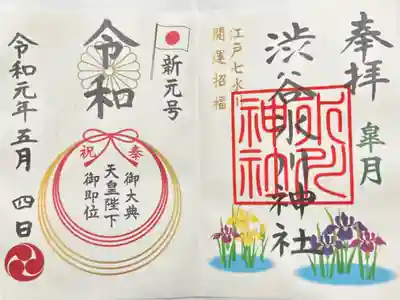 奉拝
皐月
渋谷氷川神社
氷川
神社
江戸七氷川
開運招福
新元号
令和
奉祝
御大典
天皇陛下
御即位
令和元年五月四日